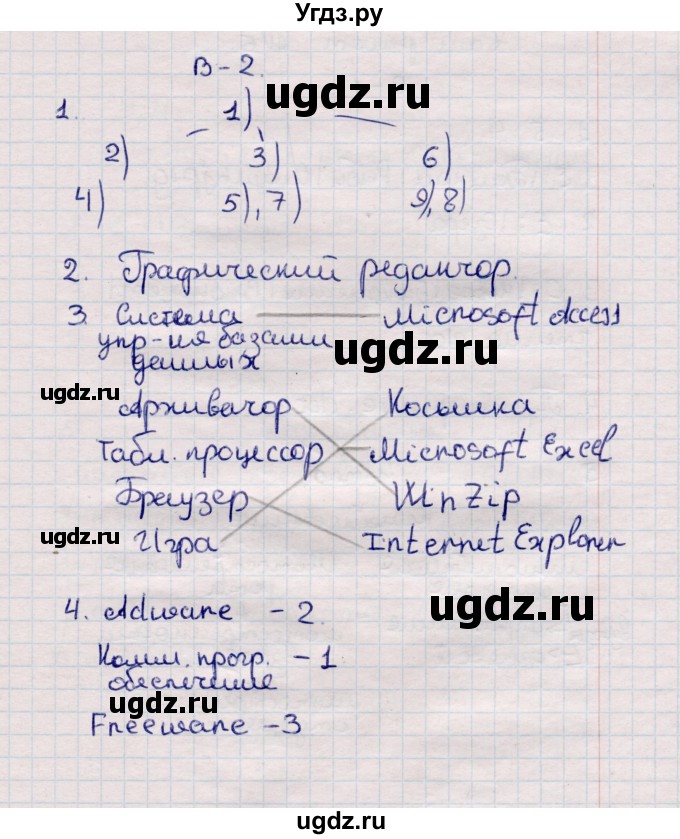 Угдз.ру
В-2.
ugdz.ru
1. 1)
2) 3) 6)
4) 5), 7) 9), 8)
2. Графический редактор.
3. Система Microsoft Access
упр-ия базами
данных
ugdz.ru
ugdz.ru
Архиватор Косынка
Табл. процессор Microsoft Excel
Браузер WinZip
ugdz.ru
Игра Internet Explorer
4. Adware - 2.
ugdz.ru
Комм. прогр. - 1
обеспечение
ugdz.ru
Freeware - 3
ugdz.ru